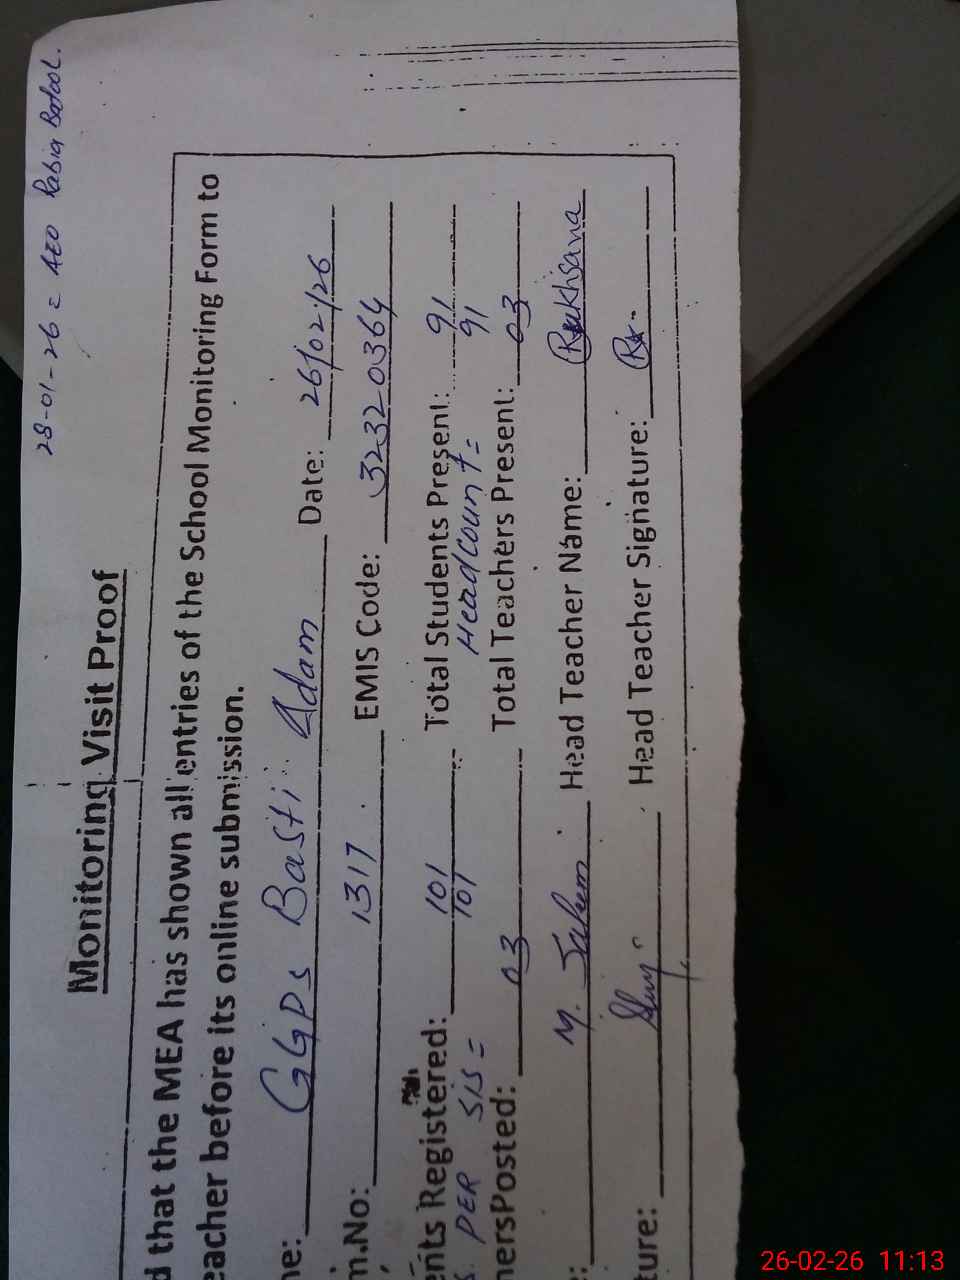 28-01-26 = AEO Rabia Batool.
Monitoring Visit Proof
d that the MEA has shown all entries of the School Monitoring Form to
eacher before its online submission.
ne: GGPS Basti Adam Date: 26/02/26
m.No: 1317 EMIS Code: 32320364
ents Registered: 101 Total Students Present: 91
S. PER SIS = 101 Headcount = 91
hersPosted: 03 Total Teachers Present: 03
e: M. Salum Head Teacher Name: Rukhsana
ture: Head Teacher Signature: Rx.
26-02-26 11:13